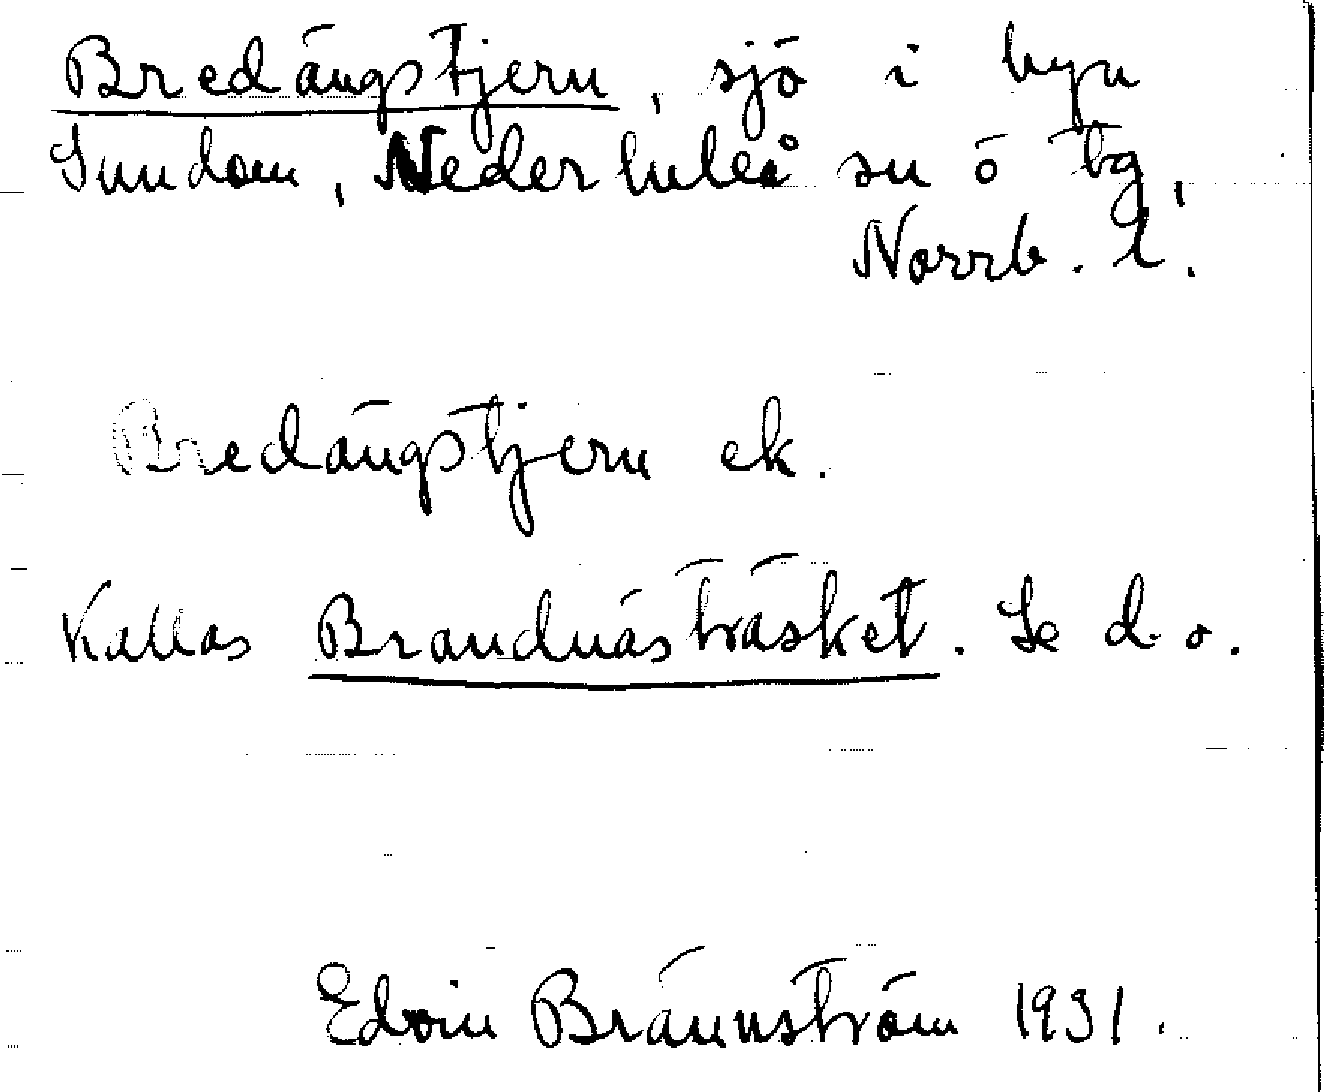 Bredängstjern, sjö i byn
Sundom, Nederluleå sn o tg,
Norrb. l.
Bredängstjern ek.
Kallas Brandnästräsket. Se d. o.
Edvin Brännström 1931.